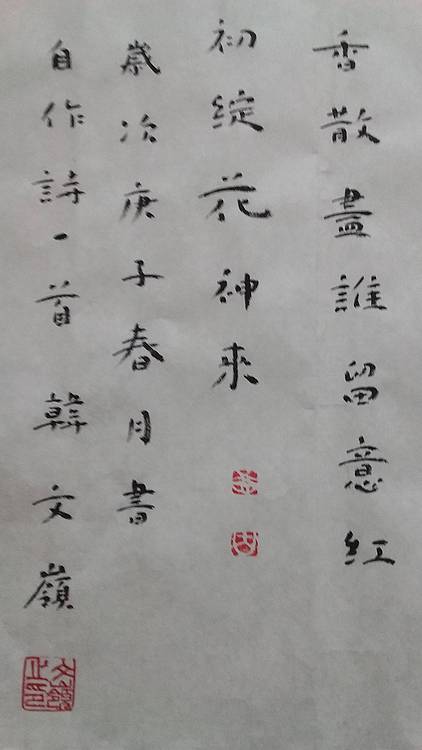 香散盡誰留意紅
初綻花神來
歲次庚子春月書
自作詩一首韓文嶺